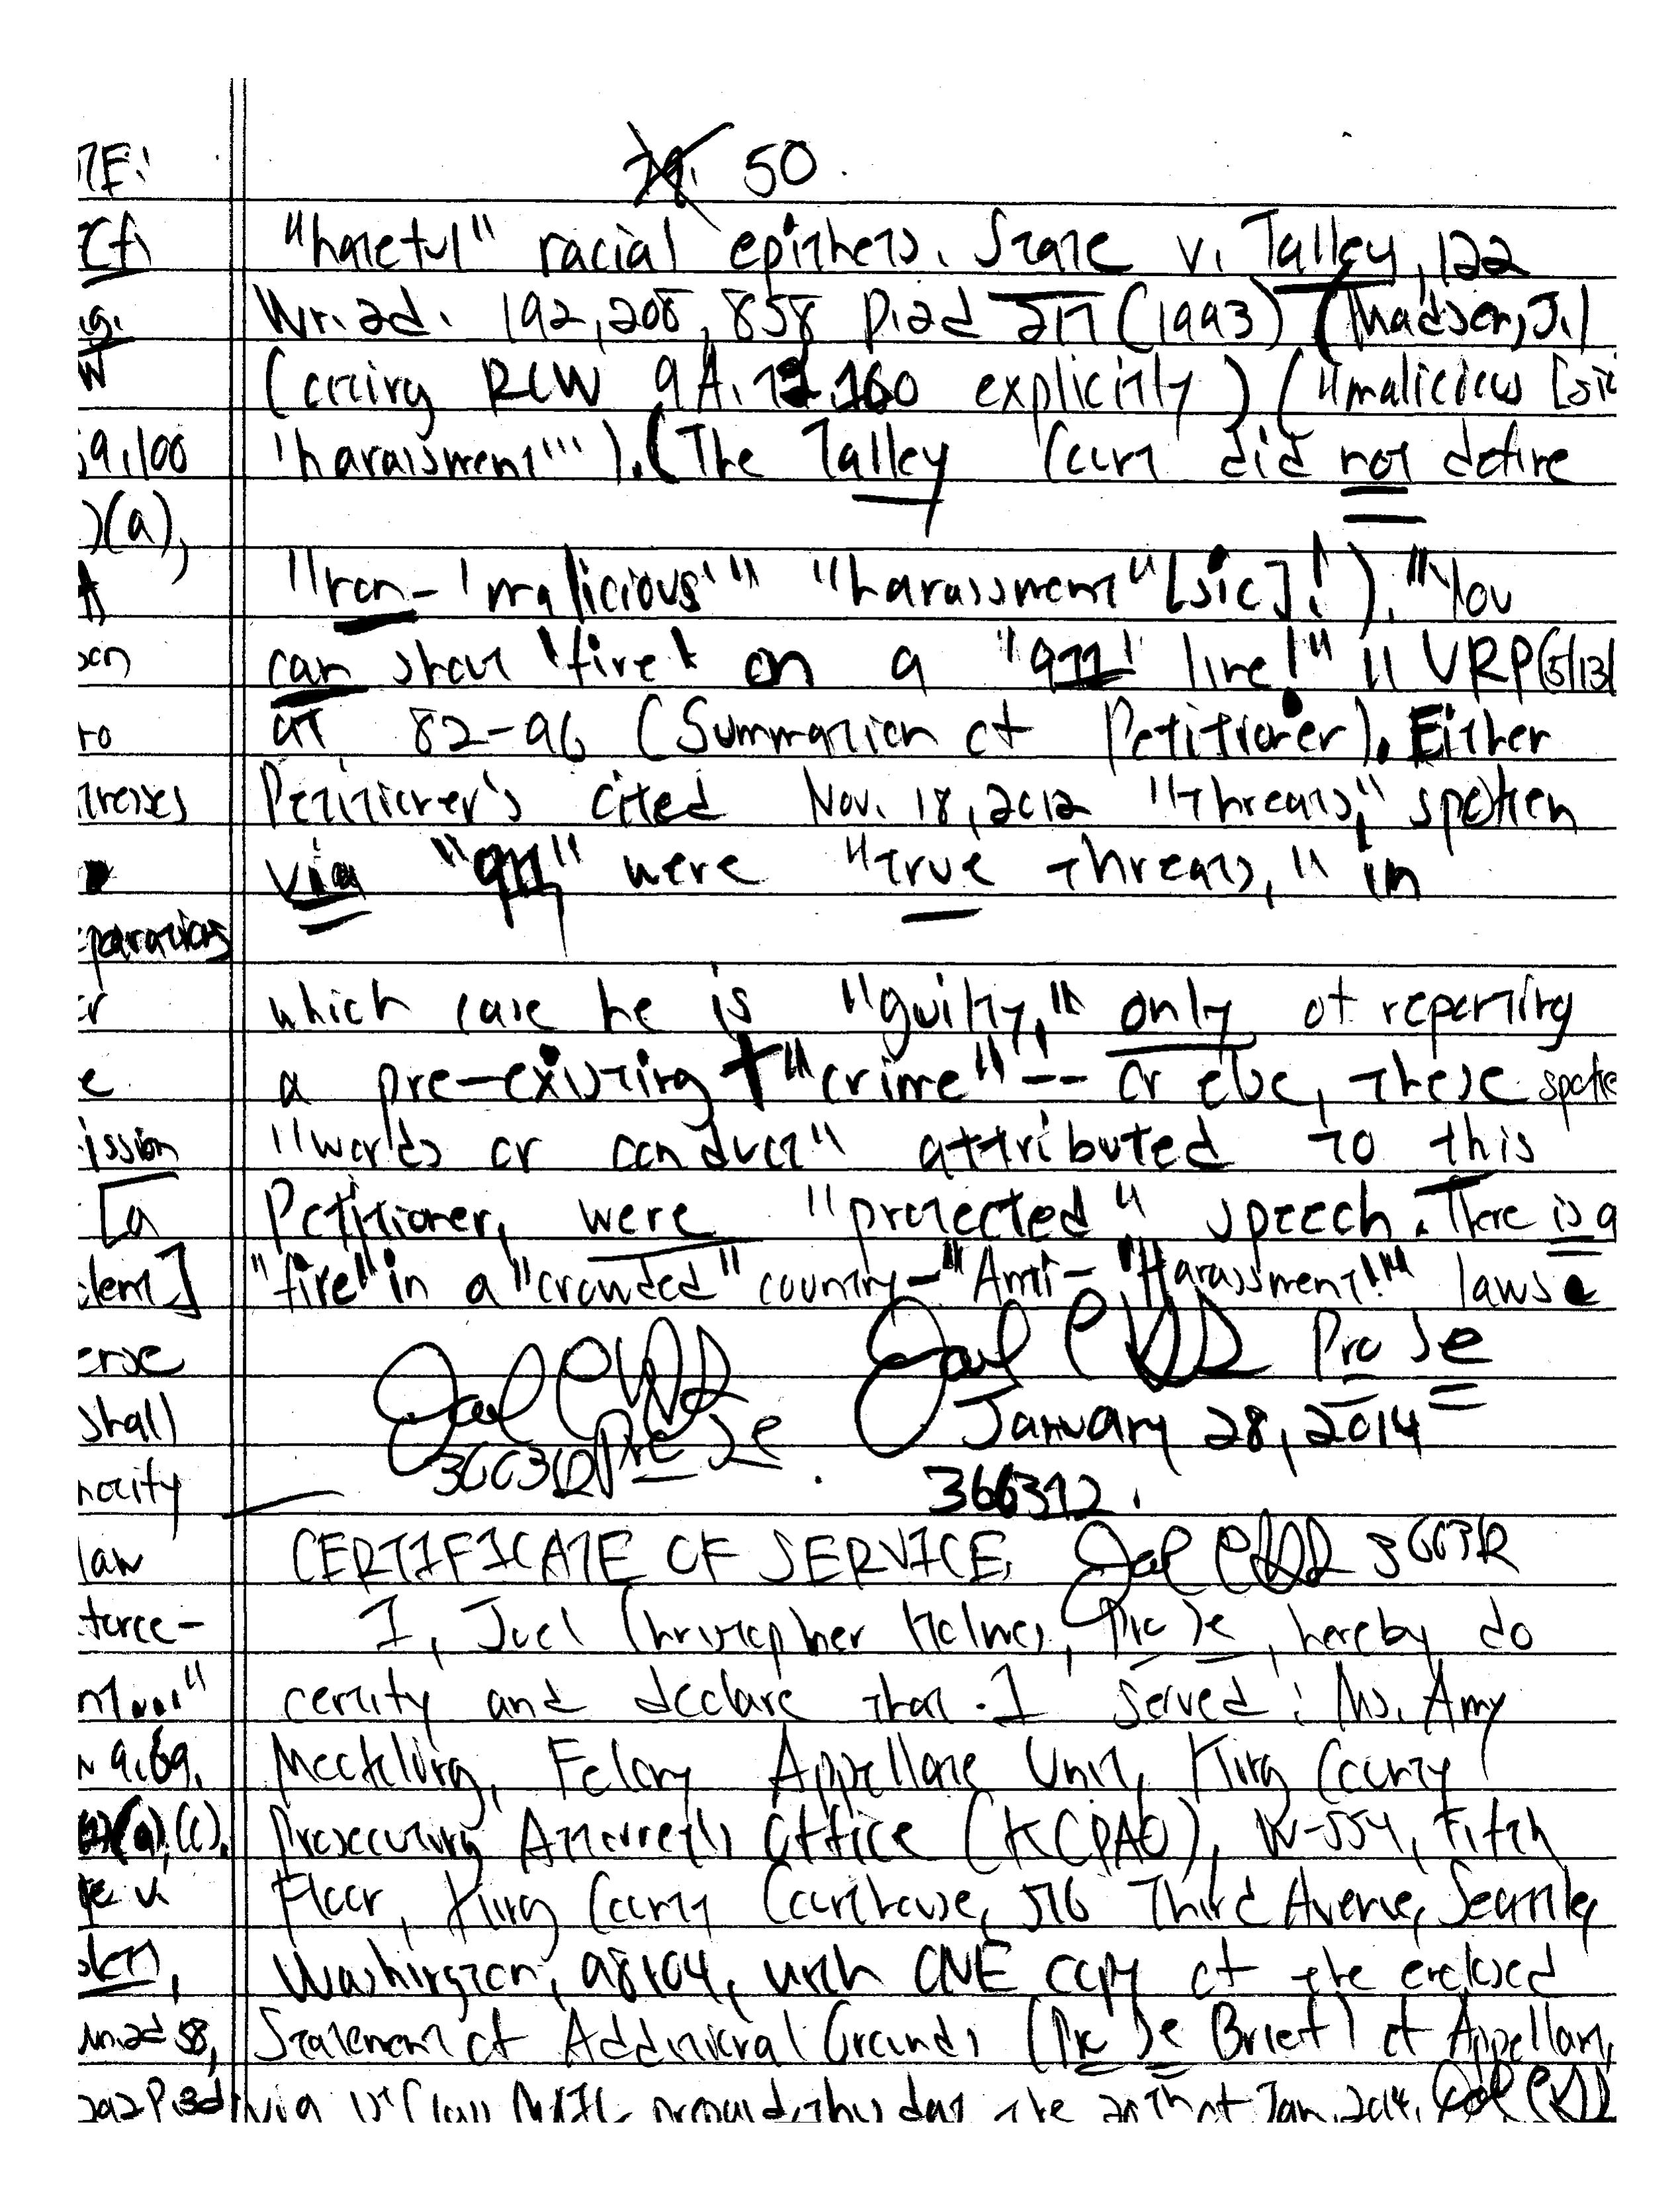 50.
"hateful" racial epithets. State v. Talley, 122
Wn.2d. 192, 208, 858 P.2d 217 (1993) (Madsen, J.)
(citing RCW 9A. explicitly) ("malicious [sic
'harassment'"). (The Talley Court did not define
"non-'malicious'" "harassment" [sic]!). "You
can shout 'fire' on a '911' line!" VRP(5/13/
at 82-96 (Summation of Petitioner). Either
Petitioner's cited Nov. 18, 2012 "threats," spoken
via "911" were "true threats," in
which case he is "guilty," only of reporting
a pre-existing "crime" -- or else, these spoke
"words or conduct" attributed to this
Petitioner, were "protected" speech. There is a
"fire" in a "crowded" country - "Anti-"Harassment!"" laws.
Pro Se
January 28, 2014
Pro Se.
366312
366312.
CERTIFICATE OF SERVICE, 366312
I, Joel Christopher Holmes, Pro Se, hereby do
certify and declare that I served: Ms. Amy
Meckling, Felony Appellate Unit, King County
Prosecuting Attorney's Office (KCPAO), W-554, Fifth
Floor, King County Courthouse, 516 Third Avenue, Seattle,
Washington, 98104, with ONE copy of the enclosed
Statement of Additional Grounds (Pro Se Brief) of Appellant,
via 1st Class this day the of Jan. 2014.
TE:
Cf
.g.
w
59.100
)(a),
to
parations
er
e
ission
[a
lem]
erse
shall
hority
law
force-
9.69.
(a),(c).
te v.
Wn.2d 58,
P.3d